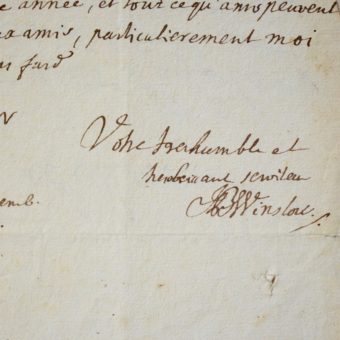 année, et tout ce qu'amis peuvent
amis, particulierement moi
fard
Votre treshumble et
serviteur
Winslow